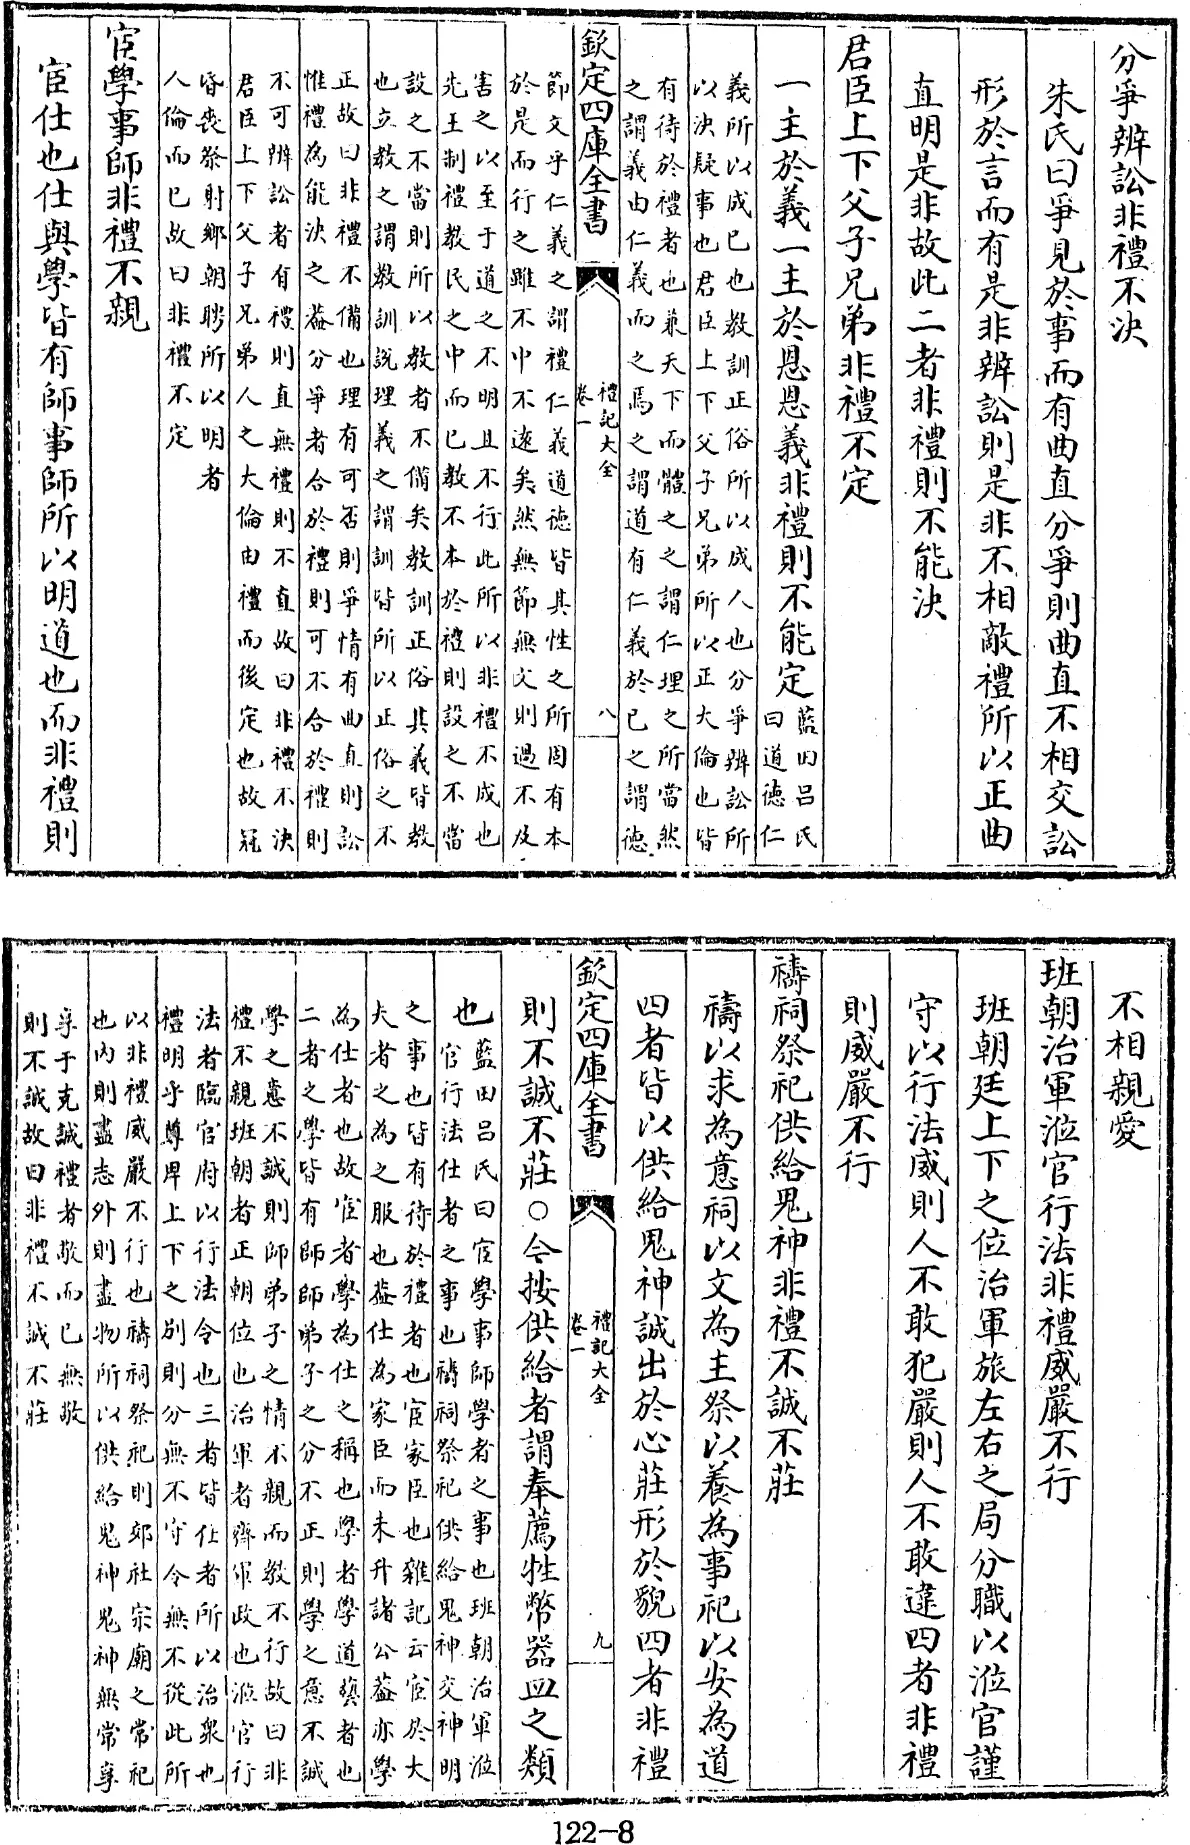 分爭辨訟非禮不決
朱氏曰爭見於事而有曲直分爭則曲直不相交訟
形於言而有是非辨訟則是非不相敵禮所以正曲
直明是非故此二者非禮則不能決
君臣上下父子兄弟非禮不定
一主於義一主於恩恩義非禮則不能定藍田呂氏
曰道德仁
義所以成已也教訓正俗所以成人也分爭辨訟所
以決疑事也君臣上下父子兄弟所以正大倫也皆
有待於禮者也兼天下而體之之謂仁理之所當然
之謂義由仁義而之焉之謂道有仁義於已之謂德
欽定四庫全書
禮記大全
卷一
八
節文乎仁義之謂禮仁義道德皆其性之所固有本
於是而行之雖不中不遠矣然無節無文則過不及
害之以至于道之不明且不行此所以非禮不成也
先王制禮教民之中而已教不本於禮則設之不當
設之不當則所以教者不備矣教訓正俗其義皆教
也立教之謂教訓説理義之謂訓皆所以正俗之不
正故曰非禮不備也理有可否則爭情有曲直則訟
惟禮為能決之蓋分爭者合於禮則可不合於禮則
不可辨訟者有禮則直無禮則不直故曰非禮不決
君臣上下父子兄弟人之大倫由禮而後定也故冠
昏喪祭射鄉朝聘所以明者
人倫而已故曰非禮不定
宦學事師非禮不親
宦仕也仕與學皆有師事師所以明道也而非禮則
不相親愛
班朝治軍涖官行法非禮威嚴不行
班朝廷上下之位治軍旅左右之局分職以涖官謹
守以行法威則人不敢犯嚴則人不敢違四者非禮
則威嚴不行
禱祠祭祀供給鬼神非禮不誠不莊
禱以求為意祠以文為主祭以養為事祀以安為道
四者皆以供給鬼神誠出於心莊形於貌四者非禮
欽定四庫全書
禮記大全
卷一
九
則不誠不莊○今按供給者謂奉薦牲幣器皿之類
也藍田呂氏曰宦學事師學者之事也班朝治軍涖
官行法仕者之事也禱祠祭祀供給鬼神交神明
之事也皆有待於禮者也宦家臣也雜記云宦於大
夫者之為之服也蓋仕為家臣而未升諸公蓋亦學
為仕者也故宦者學為仕之稱也學者學道藝者也
二者之學皆有師師弟子之分不正則學之意不誠
學之意不誠則師弟子之情不親而教不行故曰非
禮不親班朝者正朝位也治軍者齊軍政也涖官行
法者臨官府以行法令也三者皆仕者所以治衆也
禮明乎尊卑上下之别則分無不守令無不從此所
以非禮威嚴不行也禱祠祭祀則郊社宗廟之常祀
也内則盡志外則盡物所以供給鬼神鬼神無常享
享于克誠禮者敬而已無敬
則不誠故曰非禮不誠不莊
122-8